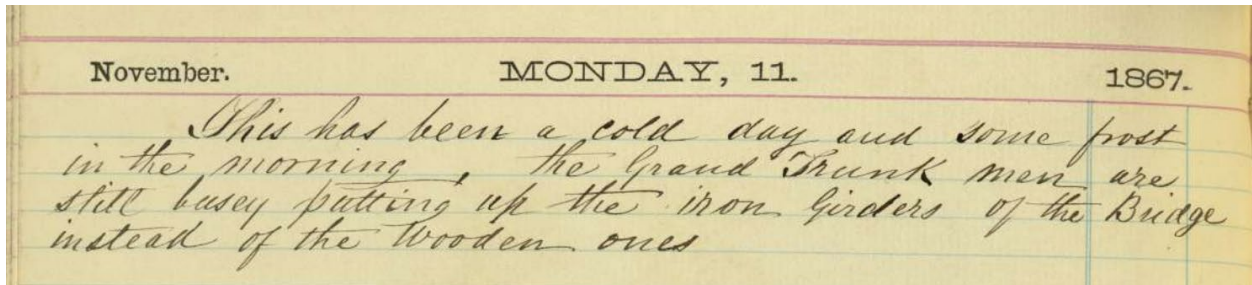 November. MONDAY, 11. 1867.
This has been a cold day and some frost
in the morning, the Grand Trunk men are
still busey putting up the iron Girders of the Bridge
instead of the Wooden ones